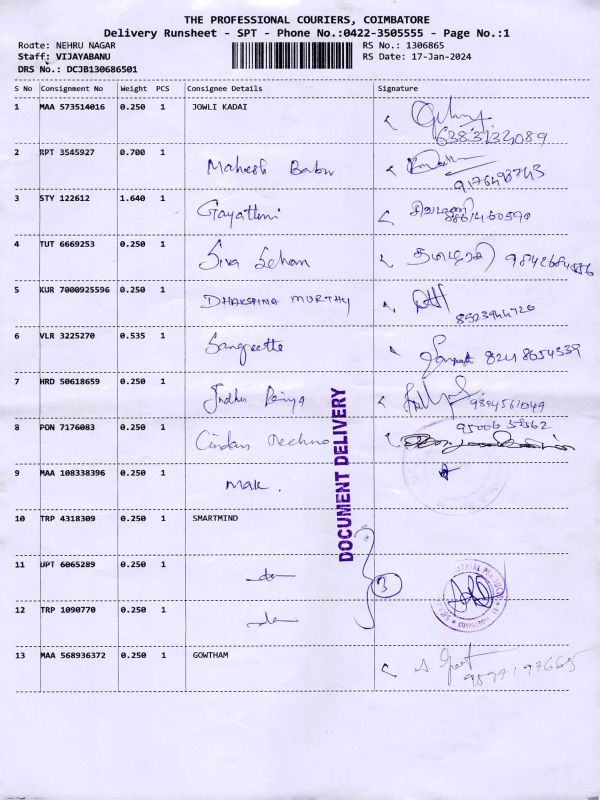 THE PROFESSIONAL COURIERS, COIMBATORE
Delivery Runsheet - SPT - Phone No.:0422-3505555 - Page No.:1
Route: NEHRU NAGAR RS No.: 1306865
Staff: VIJAYABANU RS Date: 17-Jan-2024
DRS No.: DCJB130686501
S No Consignment No Weight PCS Consignee Details Signature
1 MAA 573514016 0.250 1 JOWLI KADAI
6383132089
2 RPT 3545927 0.700 1 Mahesh Babu
9176493743
3 STY 122612 1.640 1 Gayathri
4 TUT 6669253 0.250 1 Siva
5 KUR 7000925596 0.250 1 DHAKSHINA MURTHY
8523944720
6 VLR 3225270 0.535 1 Sangeetha
8248654339
7 HRD 50618659 0.250 1 Indhu Priya
9894561049
8 PON 7176083 0.250 1 Techno
9 MAA 108338396 0.250 1 Mak.
10 TRP 4318309 0.250 1 SMARTMIND
11 UPT 6065289 0.250 1 do
3
12 TRP 1090770 0.250 1 do
13 MAA 568936372 0.250 1 GOWTHAM
DOCUMENT DELIVERY